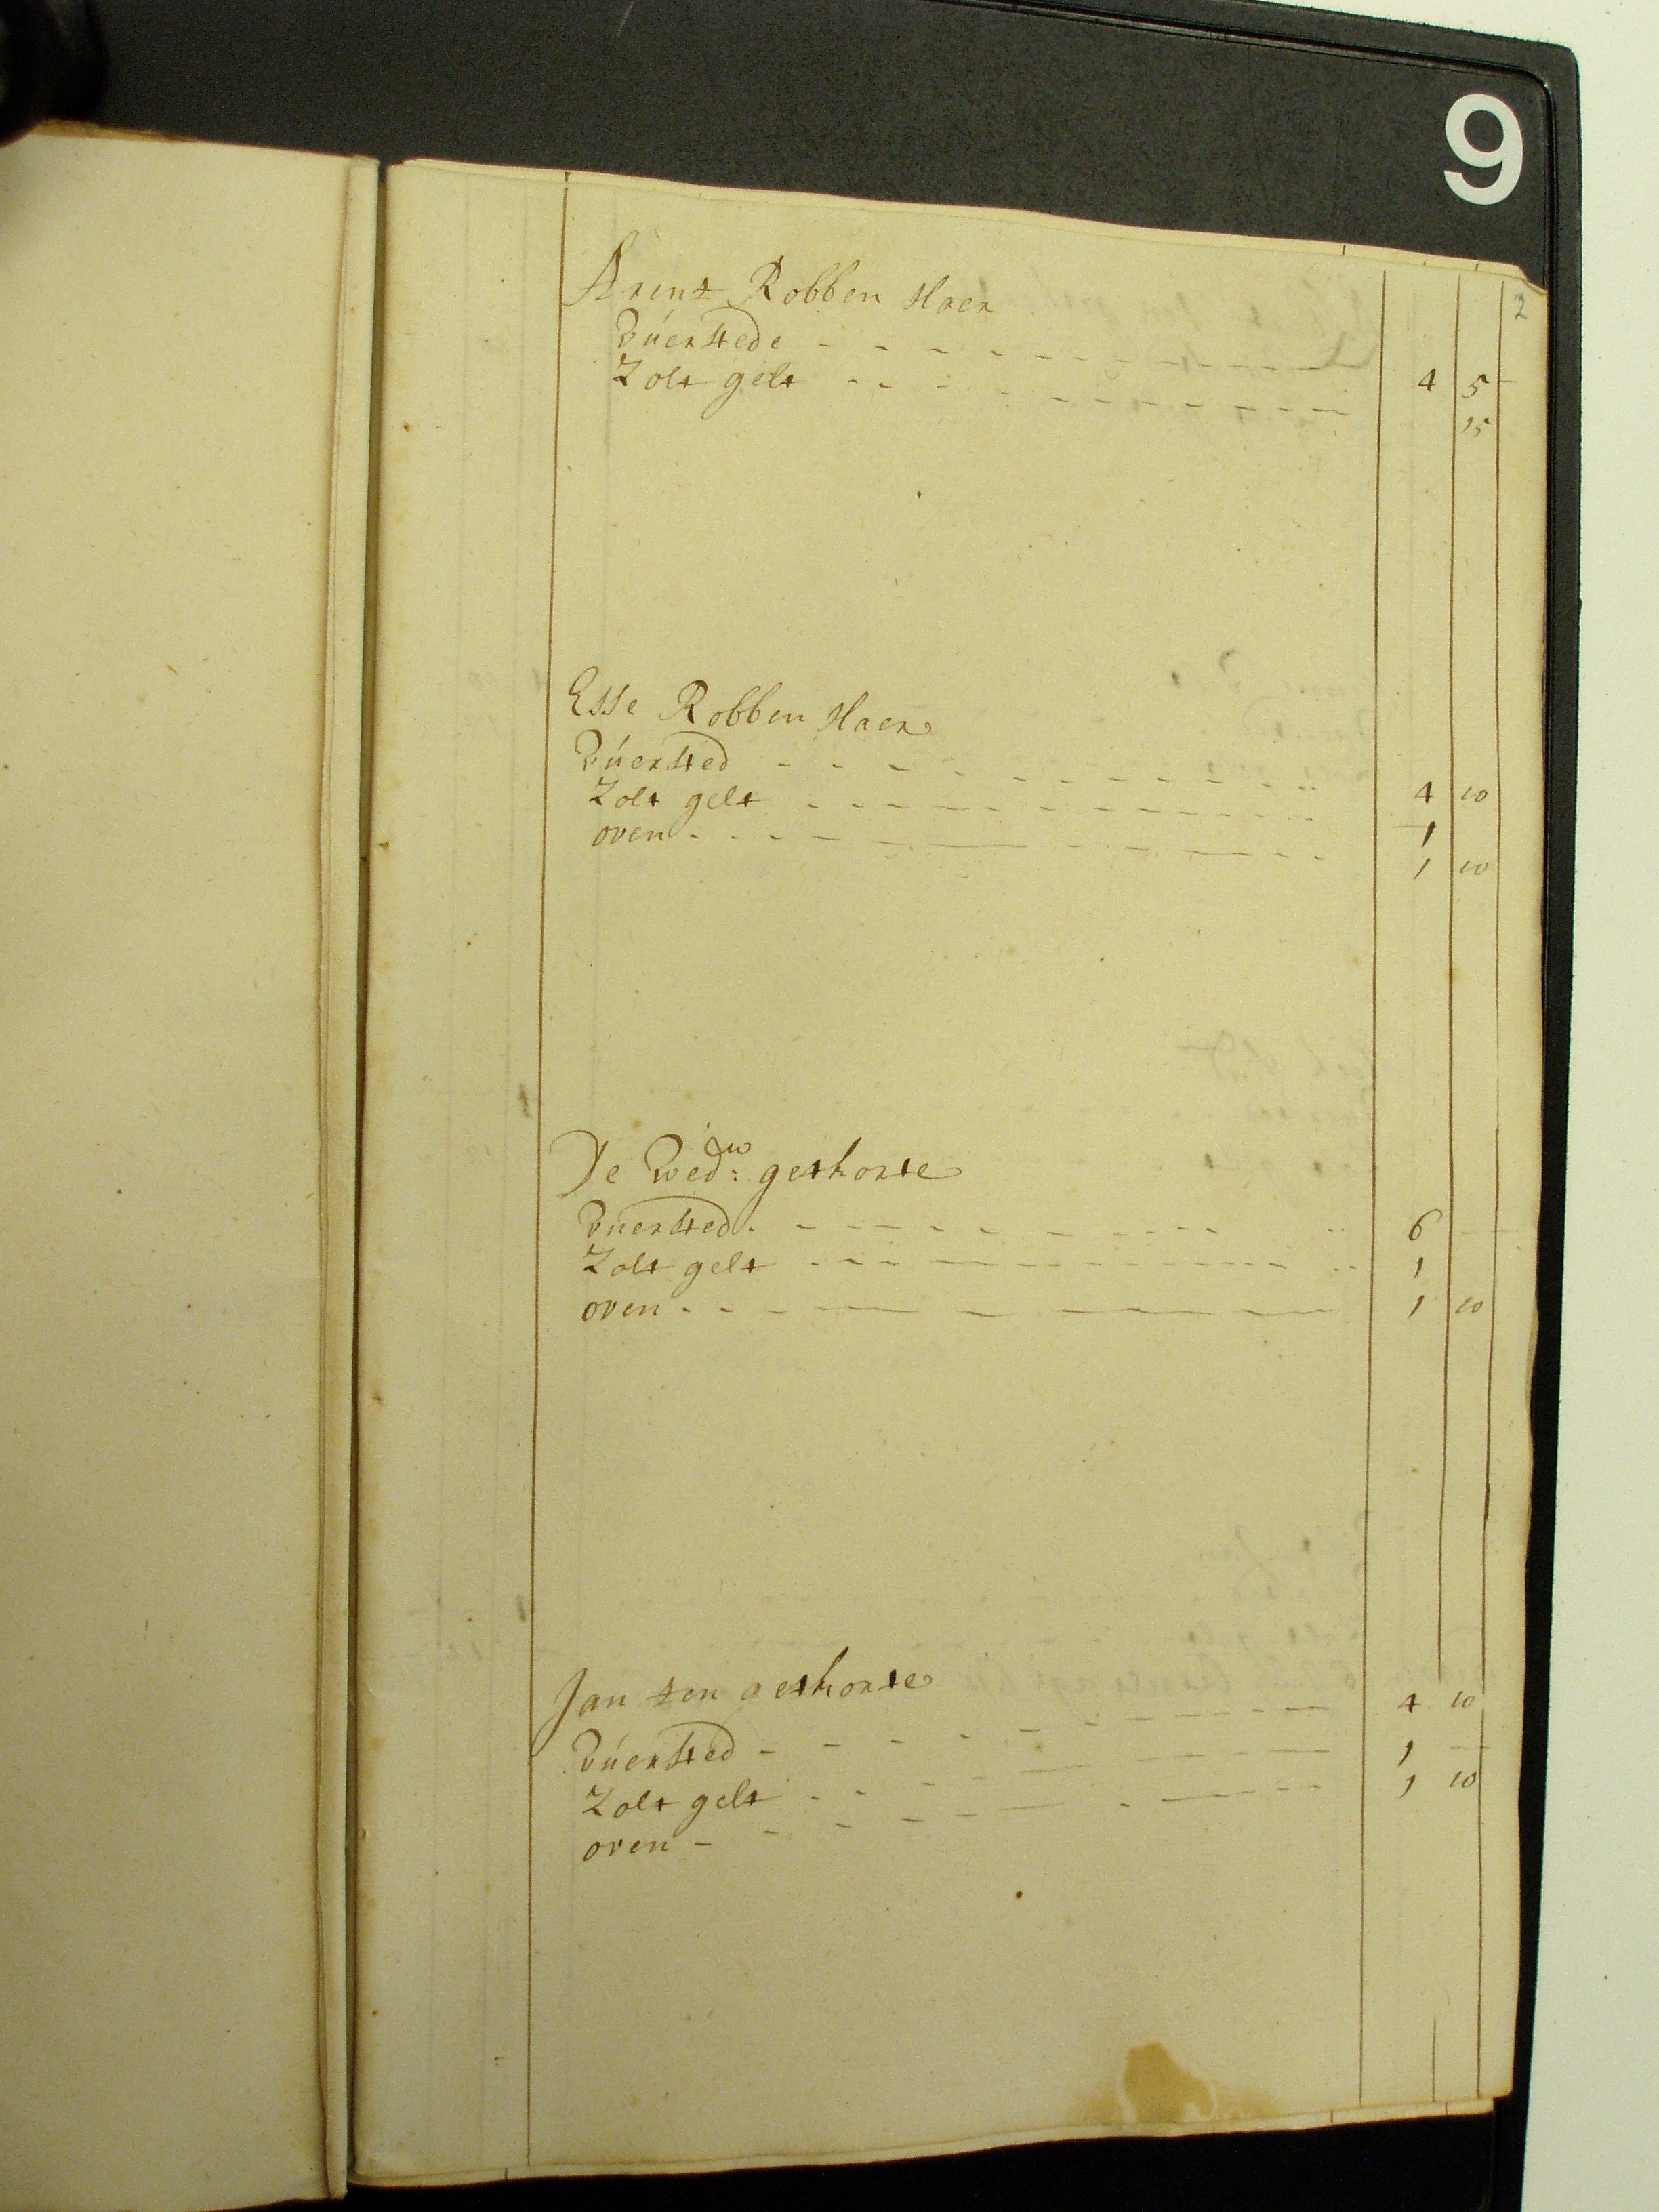 9
2
Arent Robben Haer
Vúerstede - - - - - - - - - 4 5 -
Zolt gelt - - - - - - - - - 15
Esse Robben Haer
Vúersted - - - - - - - - - 4 10
Zolt gelt - - - - - - - - - 1
oven - - - - - - - - - 1 10
De Wed:w gethorte
Vuersted - - - - - - - - - 6 -
Zolt gelt - - - - - - - - - 1
oven - - - - - - - - - 1 10
Jan ten gethorte
Vúersted - - - - - - - - - 4 10
Zolt gelt - - - - - - - - - 1 -
oven - - - - - - - - - 1 10